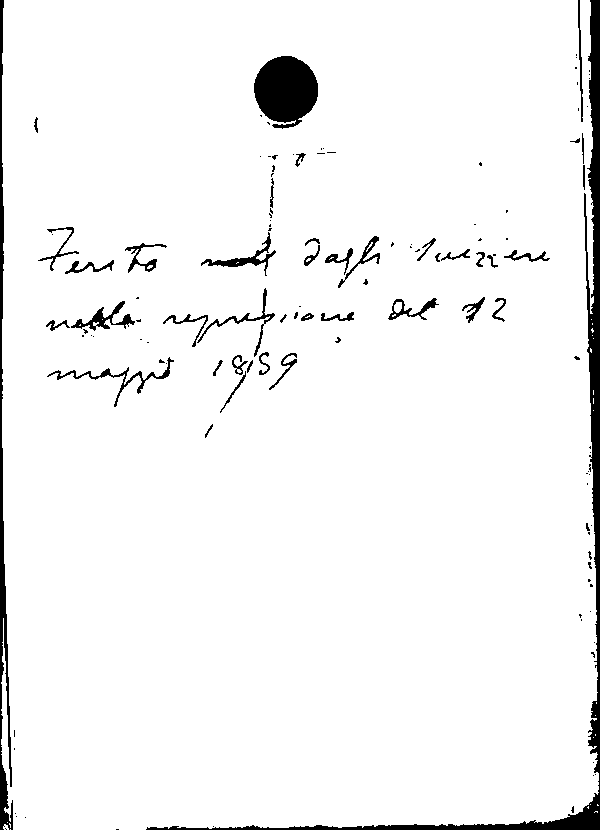 Ferito dagli svizzeri
nella repressione del 12
maggio 1859